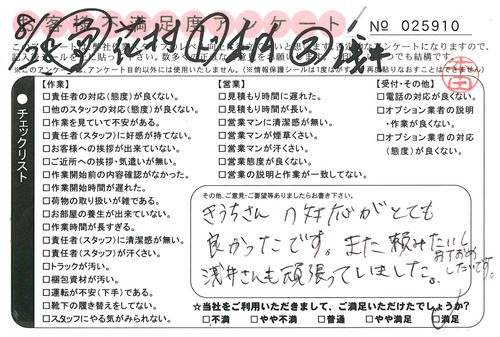 お客様不満足度アンケート
No 025910
※このアンケートは、アンケート目的以外には使用いたしません。(※情報保護シールは1度はがすと再度貼りなおすことはできません)
チェックリスト
【作業】
□責任者の対応(態度)が良くない。
□他のスタッフの対応(態度)が良くない。
□作業を見ていて不安がある。
□責任者(スタッフ)に好感が持てない。
□お客様への挨拶が出来ていない。
□ご近所への挨拶・気遣いが無い。
□作業開始前の内容確認がなかった。
□作業開始時間が遅れた。
□荷物の取り扱いが雑である。
□お部屋の養生が出来ていない。
□作業時間が長すぎる。
□責任者(スタッフ)に清潔感が無い。
□責任者(スタッフ)が汗くさい。
□トラックが汚い。
□梱包資材が汚い。
□運転が不安(下手)である。
□靴下の履き替えをしてない。
□スタッフにやる気がみられない。
【営業】
□見積もり時間に遅れた。
□見積もり時間が長い。
□営業マンに清潔感が無い。
□営業マンが煙草くさい。
□営業マンが汗くさい。
□営業態度が良くない。
□営業の説明と作業が一致してない。
【受付・その他】
□電話の対応が良くない。
□オプション業者の説明
・作業が良くない。
□オプション業者の対応
(態度)が良くない。
その他、ご意見・ご要望等ありましたらお書き下さい。
きうちさんの対応がとても
良かったです。また頼みたいし
おすすめ
したいです。
浅井さんも頑張っていました。
☆当社をご利用いただきまして、ご満足いただけたでしょうか?
□不満 □やや不満 □普通 □やや満足 □満足